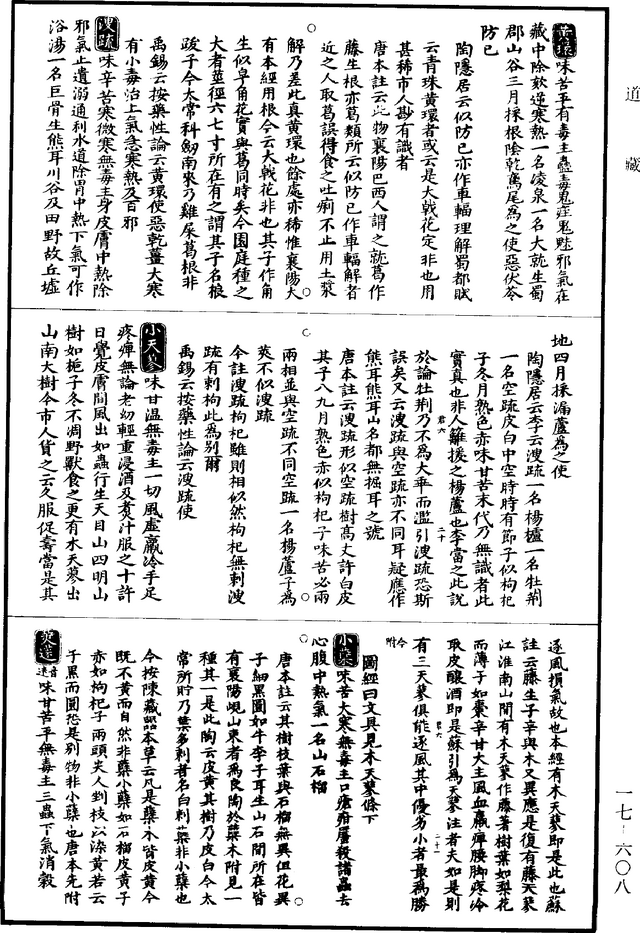 道藏
黃環味苦平有毒主蠱毒鬼疰鬼魅邪氣在
藏中除欬逆寒熱一名凌泉一名大就生蜀
郡山谷三月採根陰乾鳶尾為之使惡伏苓
防已
陶隱居云似防已亦作車輻理解蜀都賦
云青珠黃環者或云是大戟花定非也用
甚稀市人尠有識者
唐本註云此物襄陽巴西人謂之就葛作
藤生根亦葛類所云似防已作車輻解者
近之人取葛誤得食之吐痢不止用土漿
解乃差此真黃環也餘處亦稀惟襄陽大
有本經用根今云大戟花非也其子作角
生似皁角花實與葛同時矣今園庭種之
大者莖徑六七寸所在有之謂其子名狼
跋子今太常科劒南來乃雞屎葛根非
禹錫云按藥性論云黃環使惡乾薑大寒
有小毒治上氣急寒熱及百邪
溲疏味辛苦寒微寒無毒主身皮膚中熱除
邪氣止遺溺通利水道除胃中熱下氣可作
浴湯一名巨骨生熊耳川谷及田野故丘墟
地四月採漏蘆為之使
陶隱居云李云溲疏一名楊櫨一名牡荆
一名空疏皮白中空時時有節子似枸杞
子冬月熟色赤味甘苦末代乃無識者此
實真也非人籬援之楊蘆也李當之此說
於論牡荆乃不為大乖而濫引溲疏恐斯
誤矣又云溲疏與空疏亦不同耳疑應作
熊耳熊耳山名都無掘耳之號
唐本註云溲疏形似空疏樹高丈許白皮
其子八九月熟色赤似枸杞子味苦必兩
兩相並與空疏不同空疏一名楊蘆子為
莢不似溲疏
今註溲疏枸杞雖則相似然枸杞無刺溲
疏有刺枸此為別爾
禹錫云按藥性論云溲疏使
小天蓼味甘温無毒主一切風虛羸冷手足
疼痺無論老幼輕重浸酒及煮汁服之十許
日覺皮膚間風出如蟲行生天目山四明山
樹如梔子冬不凋野獸食之更有木天蓼出
山南大樹今市人貨之云久服促壽當是其
逐風損氣故也本經有木天蓼即是此也蘇
註云藤生子辛與木又異應是復有藤天蓼
江淮南山間有木天蓼作藤著樹葉如梨花
而薄子如棗辛甘大主風血羸痺腰脚疼冷
取皮釀酒即是蘇引為天蓼注者夫如是則
有三天蓼俱能逐風其中優劣小者最為勝
今附
圖經曰文具見木天蓼條下
小蘗味苦大寒無毒主口瘡疳䘌殺諸蟲去
心腹中熱氣一名山石榴
唐本註云其樹枝葉與石榴無異但花異
子細黑圓如牛李子耳生山石間所在皆
有襄陽峴山東者為良陶於蘗木附見一
種其一是此陶云皮黃其樹乃皮白今太
常所貯乃葉多刺者名白刺蘗非小蘗也
今按陳藏器本草云凡是蘗木皆皮黃今
既不黃而自然非蘗小蘗如石榴皮黃子
赤如枸杞子兩頭尖人剉枝以染黃若云
子黑而圓恐是別物非小蘗也唐本先附
莢蒾音迷味甘苦平無毒主三蟲下氣消穀
君六
二十
君六
二十一
一七-六〇八